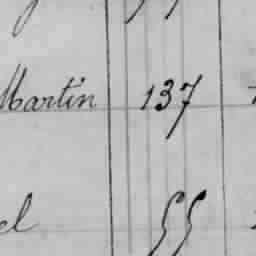 Martin 137
el 55